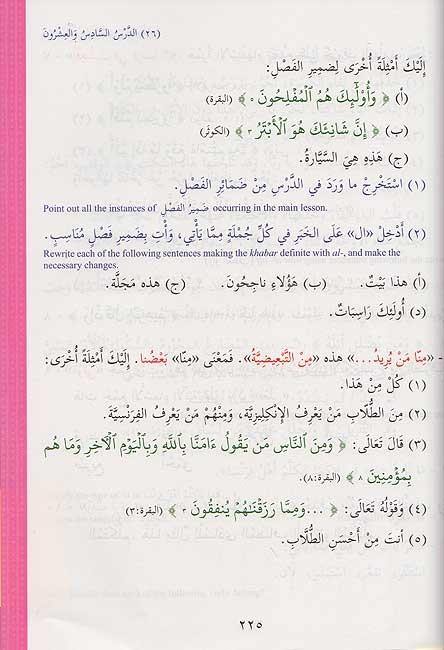 (٢٦) الدَّرْسُ السَّادِسُ وَالْعِشْرُونَ
إِلَيْكَ أَمْثِلَةً أُخْرَى لِضَمِيرِ الفَصْلِ:
(أ) ﴿ وَأُوْلَٰٓئِكَ هُمُ ٱلْمُفْلِحُونَ ٥ ﴾ (البقرة)
(ب) ﴿ إِنَّ شَانِئَكَ هُوَ ٱلْأَبْتَرُ ٣ ﴾ (الكوثر)
(ج) هَذِهِ هِيَ السَّيَّارَةُ.
(١) اسْتَخْرِجْ مَا وَرَدَ في الدَّرْسِ مِنْ ضَمَائِرِ الفَصْلِ.
Point out all the instances of ضَمِيرُ الفَصْلِ occurring in the main lesson.
(٢) أَدْخِلْ «ال» عَلَى الخَبَرِ في كُلِّ جُمْلَةٍ مِمَّا يَأْتِي، وَأْتِ بِضَمِيرِ فَصْلٍ مُنَاسِبٍ.
Rewrite each of the following sentences making the khabar definite with al-, and make the
necessary changes.
(أ) هذا بَيْتٌ. (ب) هَؤُلَاءِ ناجِحُونَ. (ج) هذه مَجَلَّةٌ.
(د) أُولَئِكَ رَاسِبَاتٌ.
- «مِنَّا مَنْ يُرِيدُ...» هذه «مِنِ التَّبْعِيضِيَّةُ». فَمَعْنَى «مِنَّا» بَعْضُنا. إِلَيْكَ أَمْثِلَةً أُخْرَى:
(١) كُلْ مِنْ هَذَا.
(٢) مِنَ الطُّلَّابِ مَنْ يَعْرِفُ الإِنْكِلِيزِيَّةَ، وَمِنْهُمْ مَنْ يَعْرِفُ الفِرَنْسِيَّةَ.
(٣) قَالَ تَعَالَى: ﴿ وَمِنَ ٱلنَّاسِ مَن يَقُولُ ءَامَنَّا بِٱللَّهِ وَبِٱلْيَوْمِ ٱلْأَخِرِ وَمَا هُم
بِمُؤْمِنِينَ ٨ ﴾ (البقرة:٨).
(٤) وَقَوْلُهُ تَعَالَى: ﴿ ...وَمِمَّا رَزَقْنَٰهُمْ يُنفِقُونَ ٣ ﴾ (البقرة:٣)
(٥) أنتَ مِنْ أَحْسَنِ الطُّلَّابِ.
٢٢٥